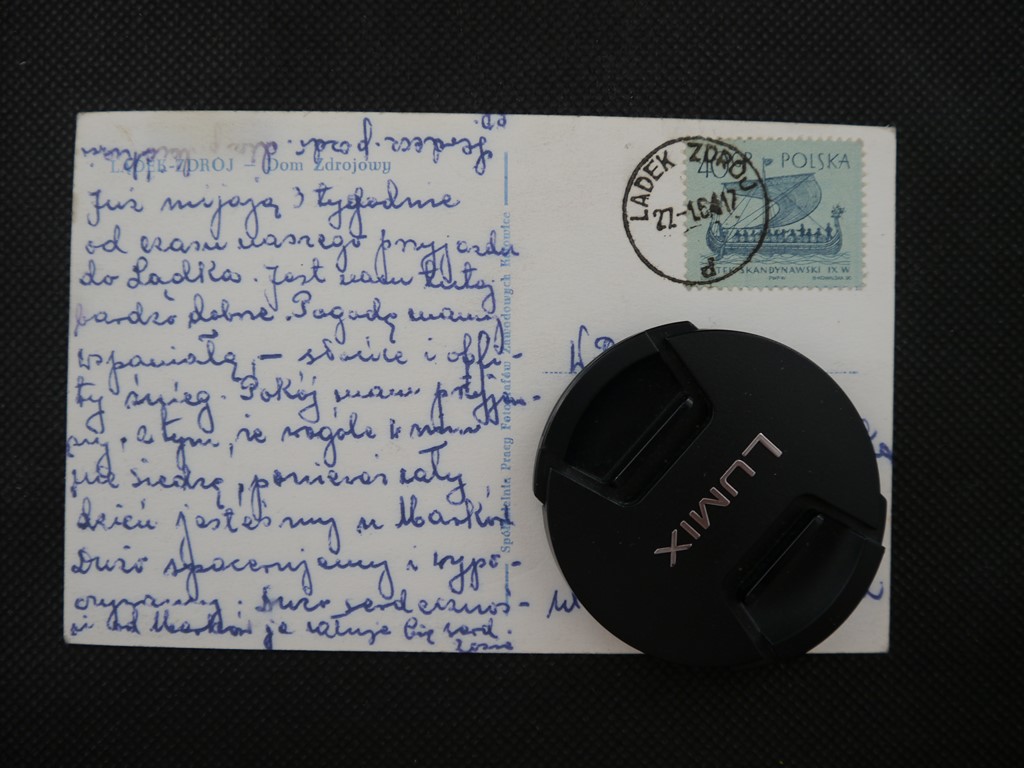 ed.
Serdecz. pozdr. d
LĄDEK-ZDRÓJ – Dom Zdrojowy
Już mijają 3 tygodnie
od czasu naszego przyjazdu
do Lądka. Jest nam tutaj
bardzo dobrze. Pogodę mamy
wspaniałą, – słońce i obfi-
ty śnieg. Pokój mam przyjem-
ny, z tym, że wogóle w nim
nie siedzę, ponieważ cały
dzień jesteśmy u Marków
Dużo spacerujemy i wypo-
czywamy. Dużo serdecznoś-
ci od Marków ja całuję Cię serd.
Zosia
Spółdzielnia Pracy Fotografów Zawodowych Katowice
LĄDEK ZDRÓJ
22-1.64 17
d
40GR POLSKA
STATEK SKANDYNAWSKI IX W.
PWPW
W
LUMIX
ul